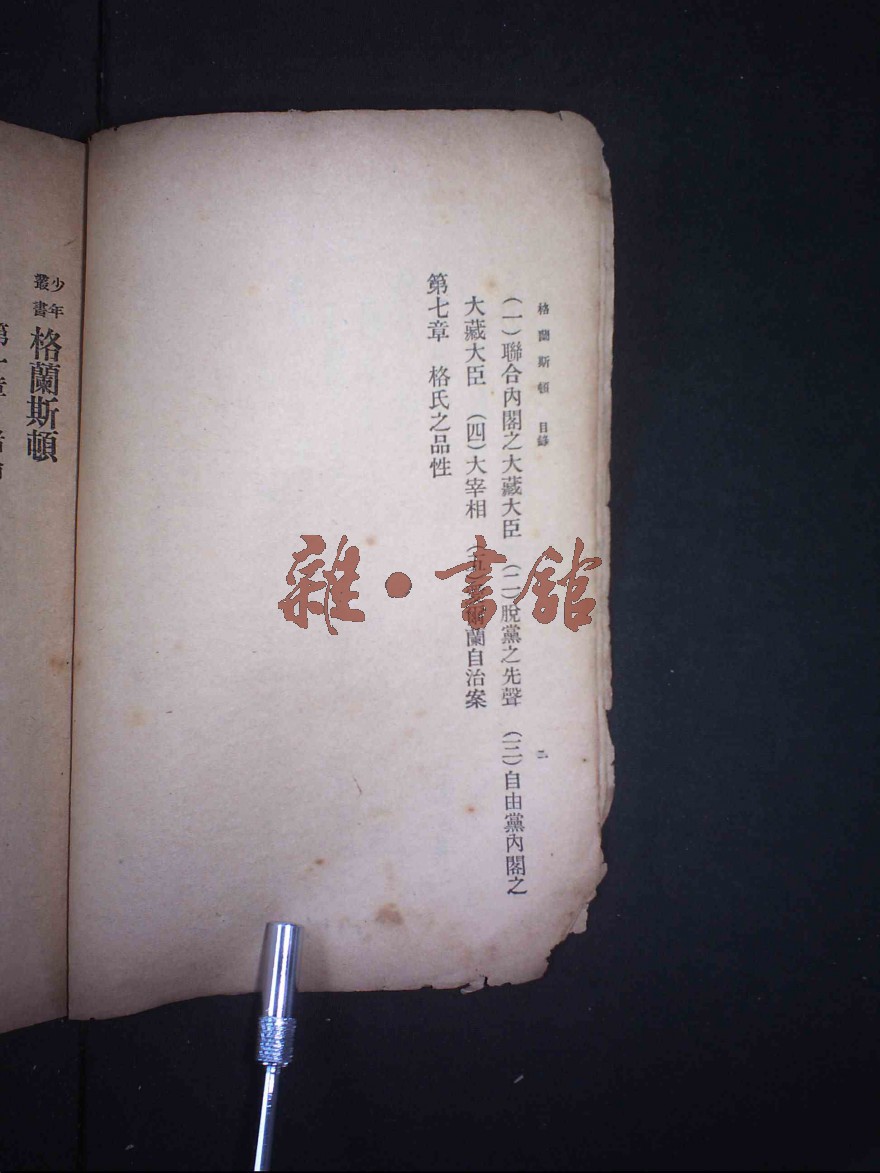 格蘭斯頓 目錄 二
(一)聯合內閣之大藏大臣 (二)脫黨之先聲 (三)自由黨內閣之
大藏大臣 (四)大宰相 (五) 蘭自治案
第七章 格氏之品性
少年叢書 格蘭斯頓
章
雜·書館